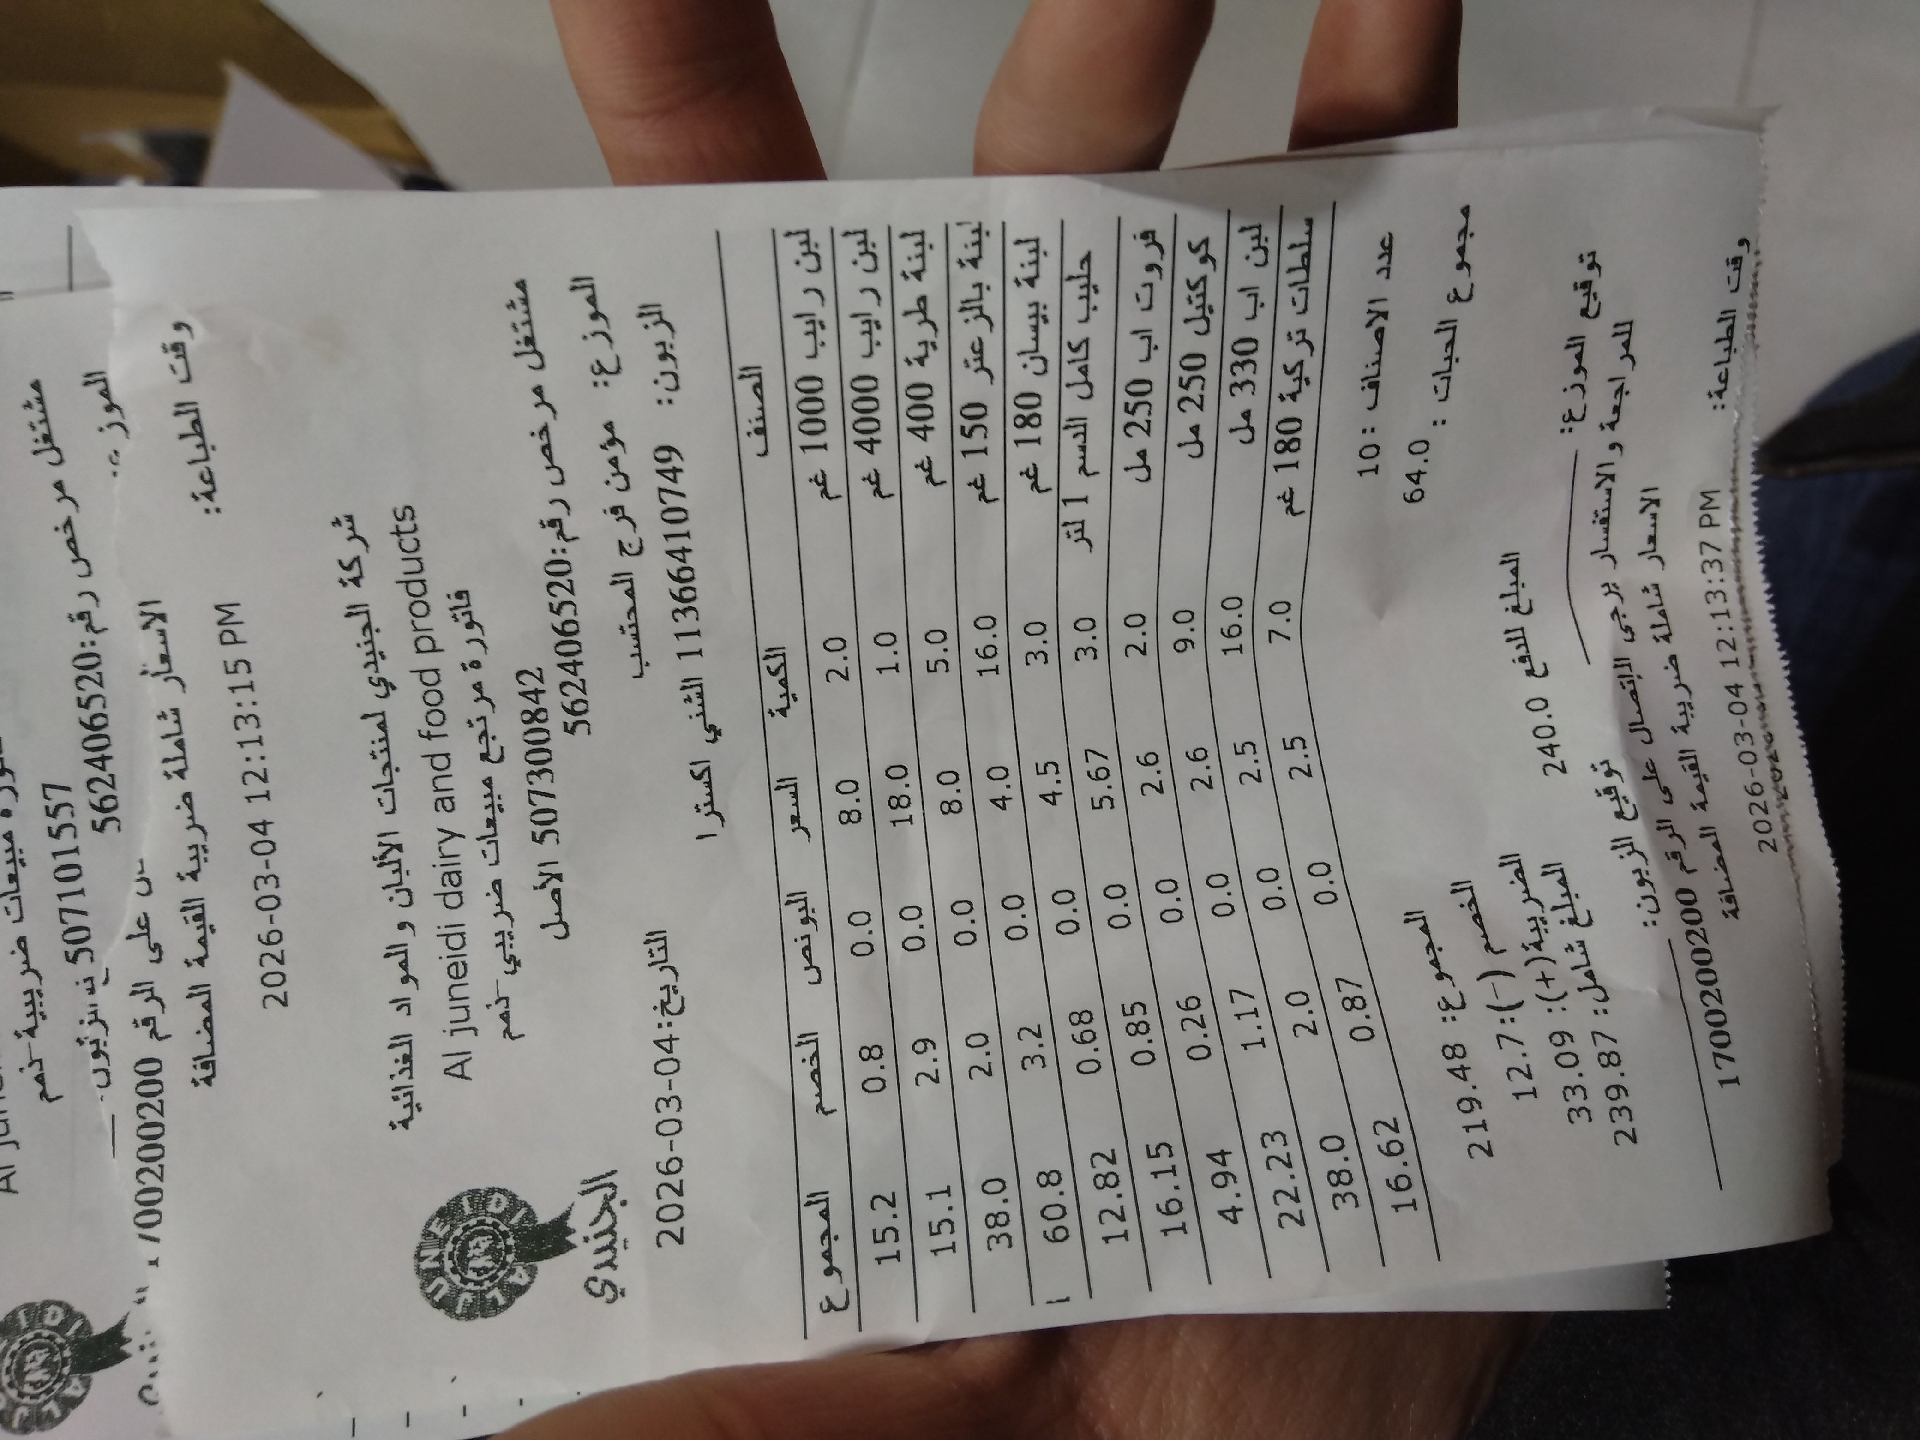 مشتغل مرخص رقم:562406520
507101557
الاسعار شاملة ضريبة القيمة المضافة
وقت الطباعة:
2026-03-04 12:13:15 PM
شركة الجنيدي لمنتجات الألبان والمواد الغذائية
Al juneidi dairy and food products
فاتورة مرتجع مبيعات ضريبي-ذمم
AL JUNEIDI
الجنيدي
507300842 الأصل
مشتغل مرخص رقم:562406520
الموزع: مؤمن فرج المحتسب
الزبون: 1136641074​9 الشني اكسترا
التاريخ:2026-03-04
الصنف الكمية السعر البونص الخصم المجموع
لبن رايب 1000 غم 2.0 8.0 0.0 0.8 15.2
لبن رايب 4000 غم 1.0 18.0 0.0 2.9 15.1
لبنة طرية 400 غم 5.0 8.0 0.0 2.0 38.0
لبنة بالزعتر 150 غم 16.0 4.0 0.0 3.2 60.8
لبنة بيسان 180 غم 3.0 4.5 0.0 0.68 12.82
حليب كامل الدسم 1 لتر 3.0 5.67 0.0 0.85 16.15
فروت اب 250 مل 2.0 2.6 0.0 0.26 4.94
كوكتيل 250 مل 9.0 2.6 0.0 1.17 22.23
لبن اب 330 مل 16.0 2.5 0.0 2.0 38.0
سلطات تركية 180 غم 7.0 2.5 0.0 0.87 16.62
عدد الاصناف : 10
مجموع الحبات : 64.0
المجموع: 219.48
الخصم (-): 12.7
الضريبة(+): 33.09
المبلغ شامل: 239.87
المبلغ للدفع 240.0
توقيع الموزع:
توقيع الزبون:
للمراجعة والاستفسار يرجى الإتصال على الرقم 1700200200
الاسعار شاملة ضريبة القيمة المضافة
وقت الطباعة:
2026-03-04 12:13:37 PM